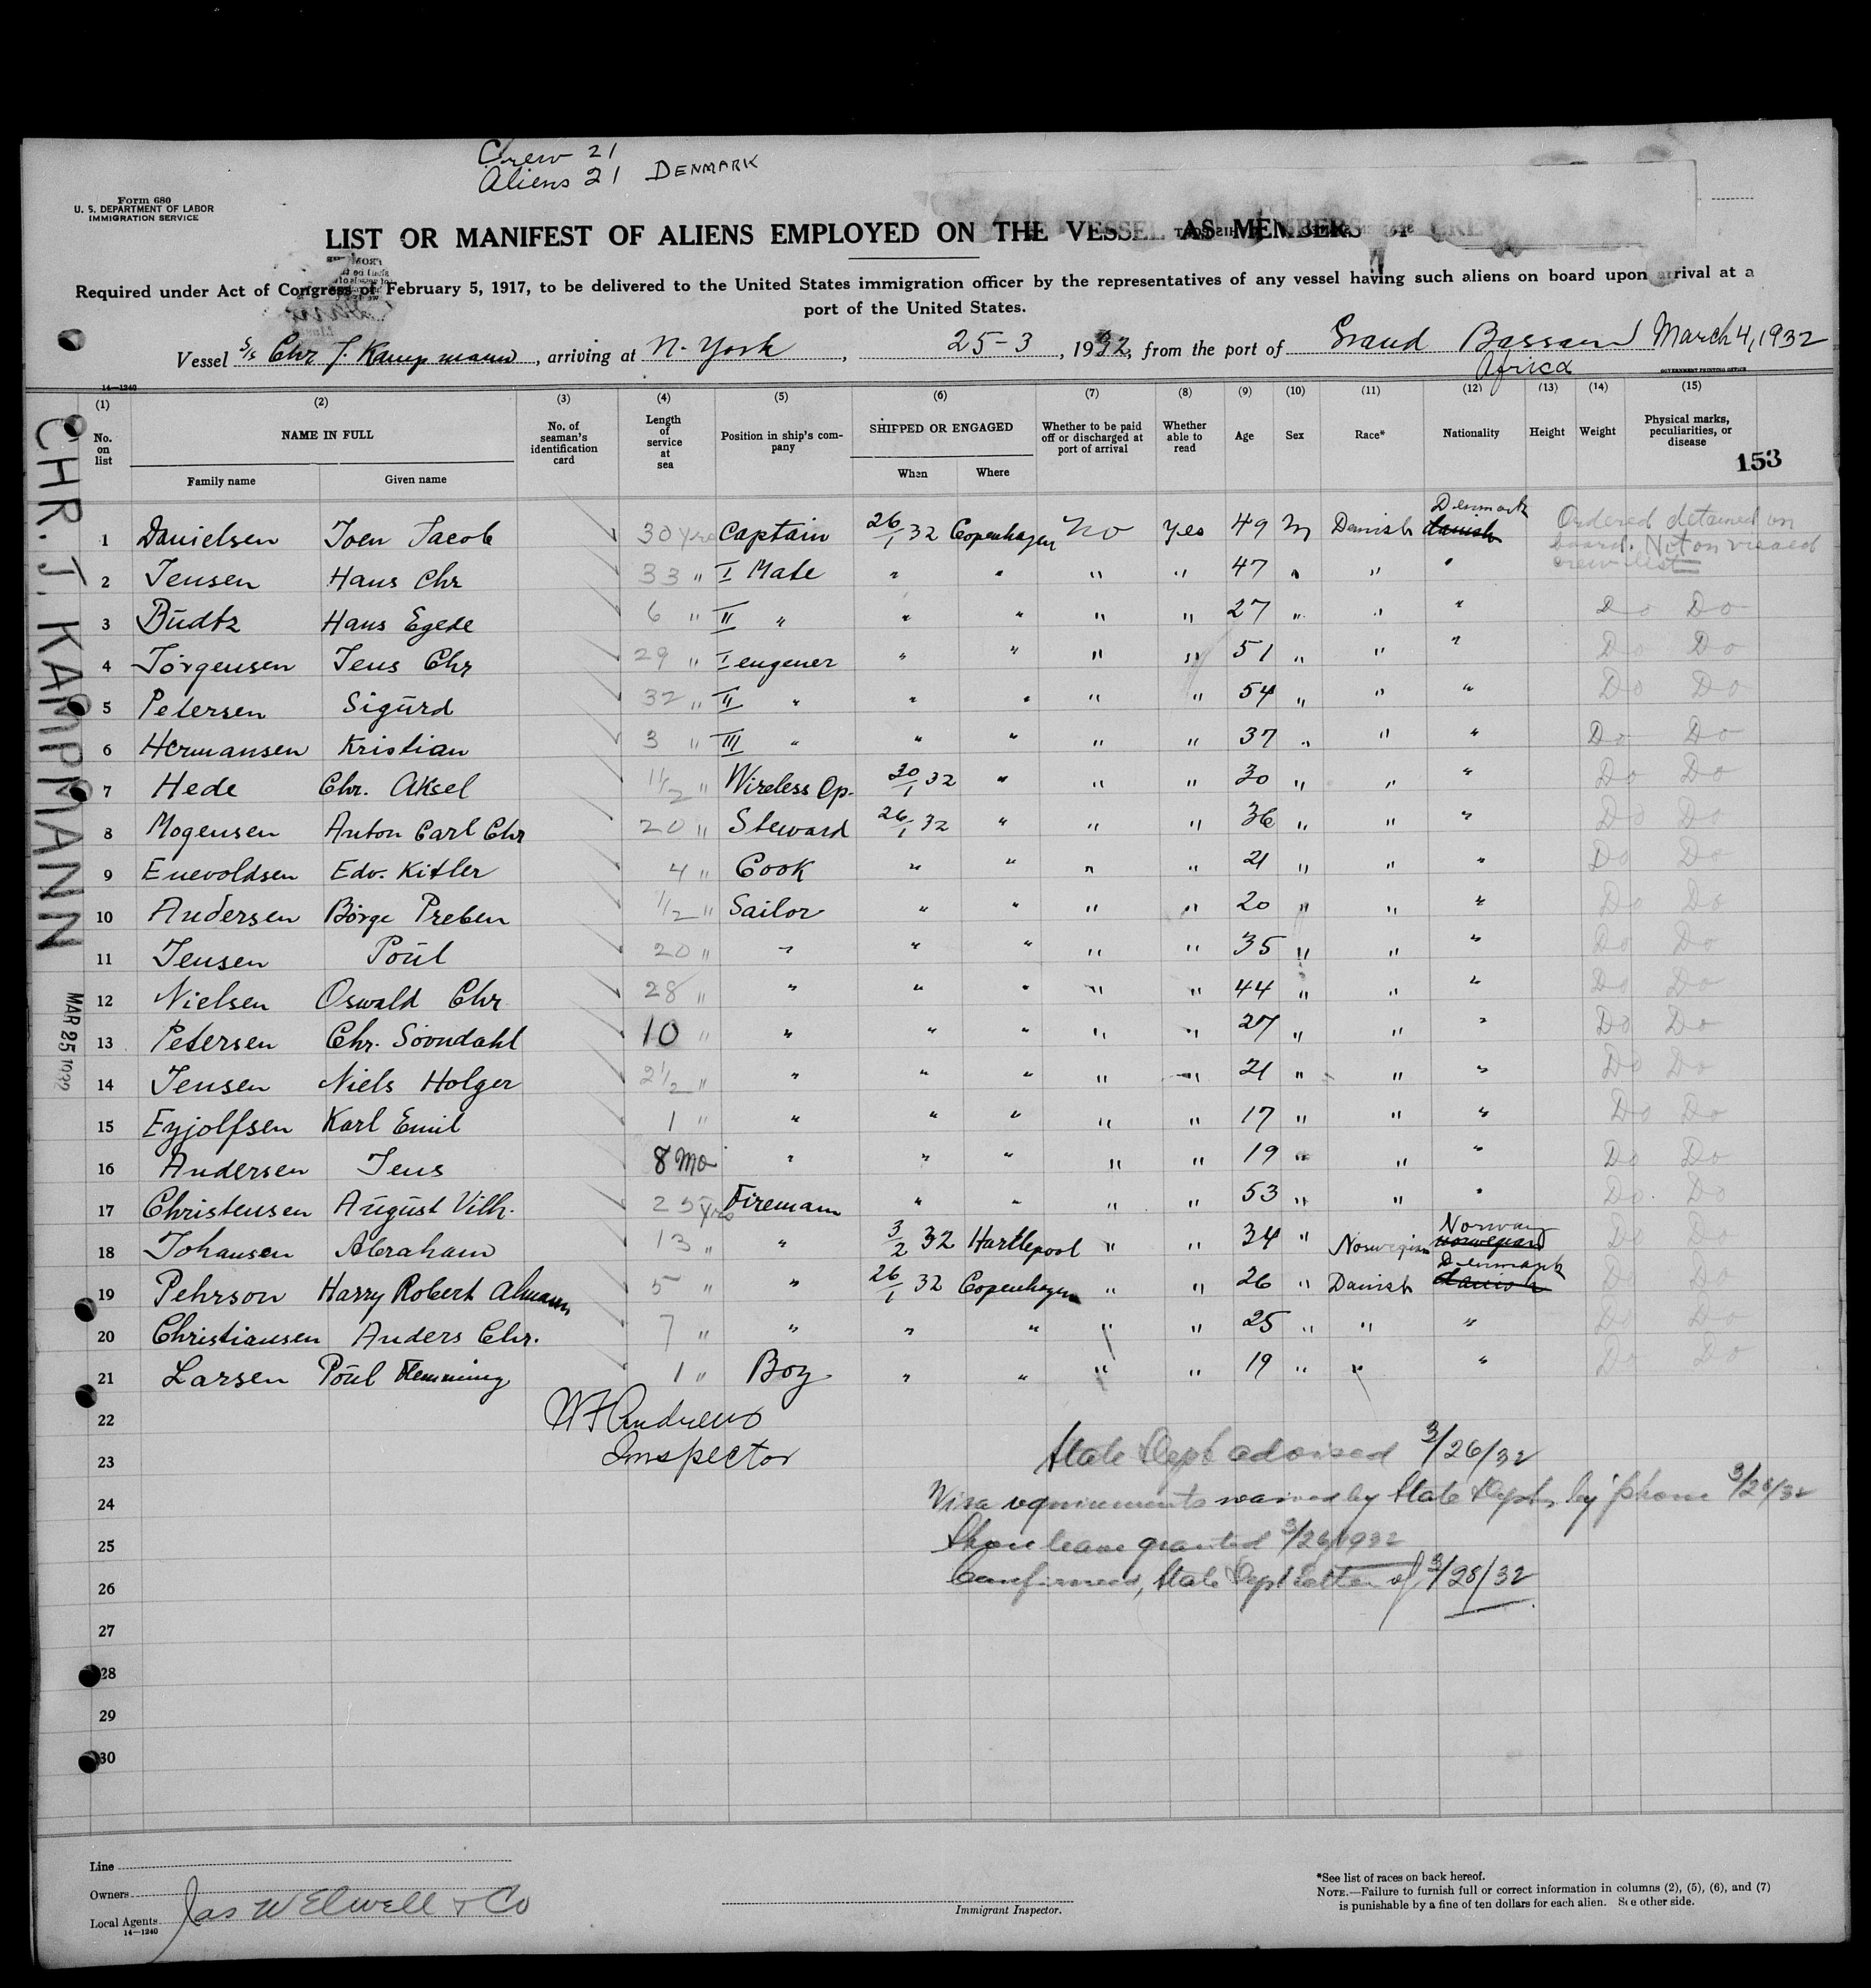 Crew 21
Aliens 21 DENMARK
Form 680
U. S. DEPARTMENT OF LABOR
IMMIGRATION SERVICE
LIST OR MANIFEST OF ALIENS EMPLOYED ON THE VESSEL AS MEMBERS OF CREW
Required under Act of Congress of February 5, 1917, to be delivered to the United States immigration officer by the representatives of any vessel having such aliens on board upon arrival at a
port of the United States.
Vessel S/S Chr. J. Kampmann, arriving at N-York, 25-3, 1932, from the port of Grand Bassam March 4, 1932
Africa
14-1240
GOVERNMENT PRINTING OFFICE
(1) (2) (3) (4) (5) (6) (7) (8) (9) (10) (11) (12) (13) (14) (15)
No. on list NAME IN FULL No. of seaman's identification card Length of service at sea Position in ship's company SHIPPED OR ENGAGED Whether to be paid off or discharged at port of arrival Whether able to read Age Sex Race* Nationality Height Weight Physical marks, peculiarities, or disease
Family name Given name When Where
153
CHR. J. KAMPMANN
MAR 25 1932
1 Danielsen Joen Jacob 30 yrs Captain 26/1 32 Copenhagen No Yes 49 M Danish Danish Denmark Ordered detained on board. Not on visaed crew list
2 Jensen Hans Chr 33 " I Mate " " " " 47 " " "
3 Budtz Hans Egede 6 " II " " " " " 27 " " " Do Do
4 Jörgensen Jens Chr 29 " I engener " " " " 51 " " " Do Do
5 Petersen Sigurd 32 " II " " " " " 54 " " " Do Do
6 Hermansen Kristian 3 " III " " " " " 37 " " " Do Do
7 Hede Chr. Aksel 1 1/2 " Wireless Op. 30/1 32 " " " 30 " " " Do Do
8 Mogensen Anton Carl Chr 20 " Steward 26/1 32 " " " 36 " " " Do Do
9 Enevoldsen Edv. Kitler 4 " Cook " " " " 21 " " " Do Do
10 Andersen Börge Preben 1/2 " Sailor " " " " 20 " " " Do Do
11 Jensen Poul 20 " " " " " " 35 " " " Do Do
12 Nielsen Oswald Chr 28 " " " " " " 44 " " " Do Do
13 Petersen Chr. Sövndahl 10 " " " " " " 27 " " " Do Do
14 Jensen Niels Holger 2 1/2 " " " " " " 21 " " " Do Do
15 Eyjolfsen Karl Emil 1 " " " " " " 17 " " " Do Do
16 Andersen Jens 8 Mo " " " " " 19 " " " Do Do
17 Christensen August Vilh. 25 yrs Fireman " " " " 53 " " " Do Do
18 Johansen Abraham 13 " " 3/2 32 Hartlepool " " 34 " Norwegian Norwegian Norway Do Do
19 Pehrson Harry Robert Almann 5 " " 26/1 32 Copenhagen " " 26 " Danish Danish Denmark Do Do
20 Christiansen Anders Chr. 7 " " " " " " 25 " " " Do Do
21 Larsen Poul Flemming 1 " Boy " " " " 19 " " " Do Do
22 W F Andrews
23 Inspector State Dept advised 3/26/32
24 Visa requirements waived by State Dept, by phone 3/26/32
25 Shore leave granted 3/26/1932
26 Confirmed, State Dept letter of 3/28/32
27
28
29
30
Line
Owners
Local Agents Jas W Elwell & Co
14-1240
Immigrant Inspector.
*See list of races on back hereof.
NOTE.—Failure to furnish full or correct information in columns (2), (5), (6), and (7)
is punishable by a fine of ten dollars for each alien. See other side.